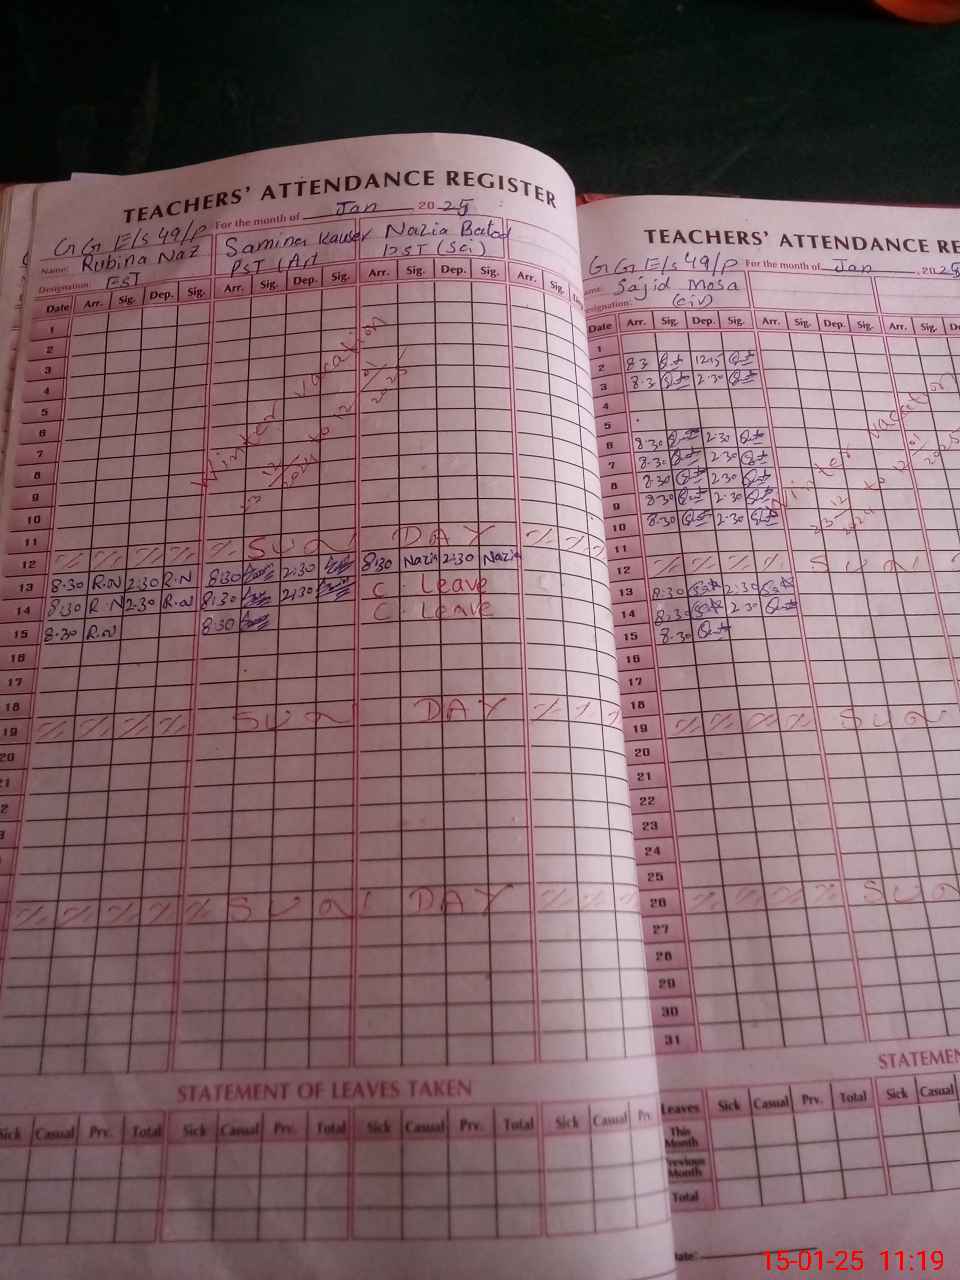 TEACHERS' ATTENDANCE REGISTER
For the month of Jan 2025
G G E/S 49/P
Name: Rubina Naz Samina Kauser Nazia Batool
Designation: EST PST (Art PST (Sci)
Date Arr. Sig. Dep. Sig. Arr. Sig. Dep. Sig. Arr. Sig. Dep. Sig. Arr. Sig.
1
2
3
4
5
6
7
8
9
10
11
Winter vacation
12/2024 to 12 01/2025
12 % % % % % SUN DAY % % %
13 8:30 R.N 2:30 R.N 8:30 2:30 8:30 Nazia 2:30 Nazia
14 8:30 R.N 2:30 R.N 8:30 2:30 C. Leave
15 8:30 R.N 8:30 C. Leave
16
17
18
19 % % % % SUN DAY % % %
20
21
2
3
% % % % % SUN DAY % % %
STATEMENT OF LEAVES TAKEN
Sick Casual Prv. Total Sick Casual Prv. Total Sick Casual Prv. Total Sick Casual Prv.
TEACHERS' ATTENDANCE RE
G G E/S 49/P For the month of Jan, 2025
ame: Sajid Mosa
esignation: (civ)
Date Arr. Sig. Dep. Sig. Arr. Sig. Dep. Sig. Arr. Sig. De
1
2 8:3 1215
3 8:3 2:30
4
5
6 8:30 2:30
7 8:30 2:30
8 8:30 2:30
9 8:30 2:30
10 8:30 2:30
11
Winter vacation
23-12/2024 to 12 01/2025
12 % % % % SUN
13 8:30 2:30
14 8:30 2:30
15 8:30
16
17
18
19 % % % % SUN
20
21
22
23
24
25
26 % % % % SUN
27
28
29
30
31
STATEMEN
Leaves Sick Casual Prv. Total Sick Casual
This Month
Previous Month
Total
Date:
15-01-25 11:19